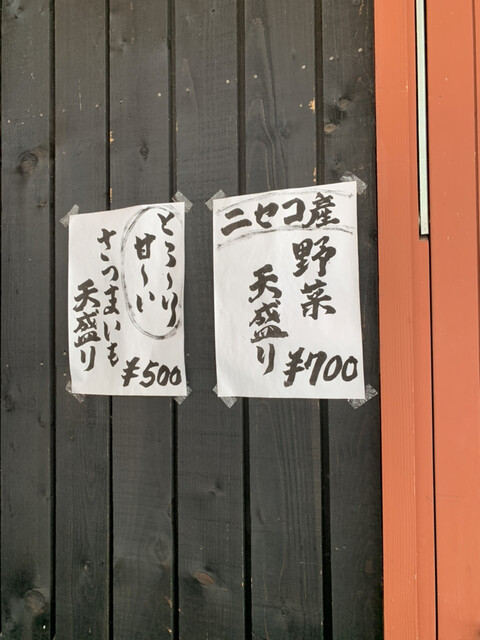 ニセコ産
野菜
天盛り
¥700
とろ〜り
甘〜い
さつまいも
天盛り
¥500